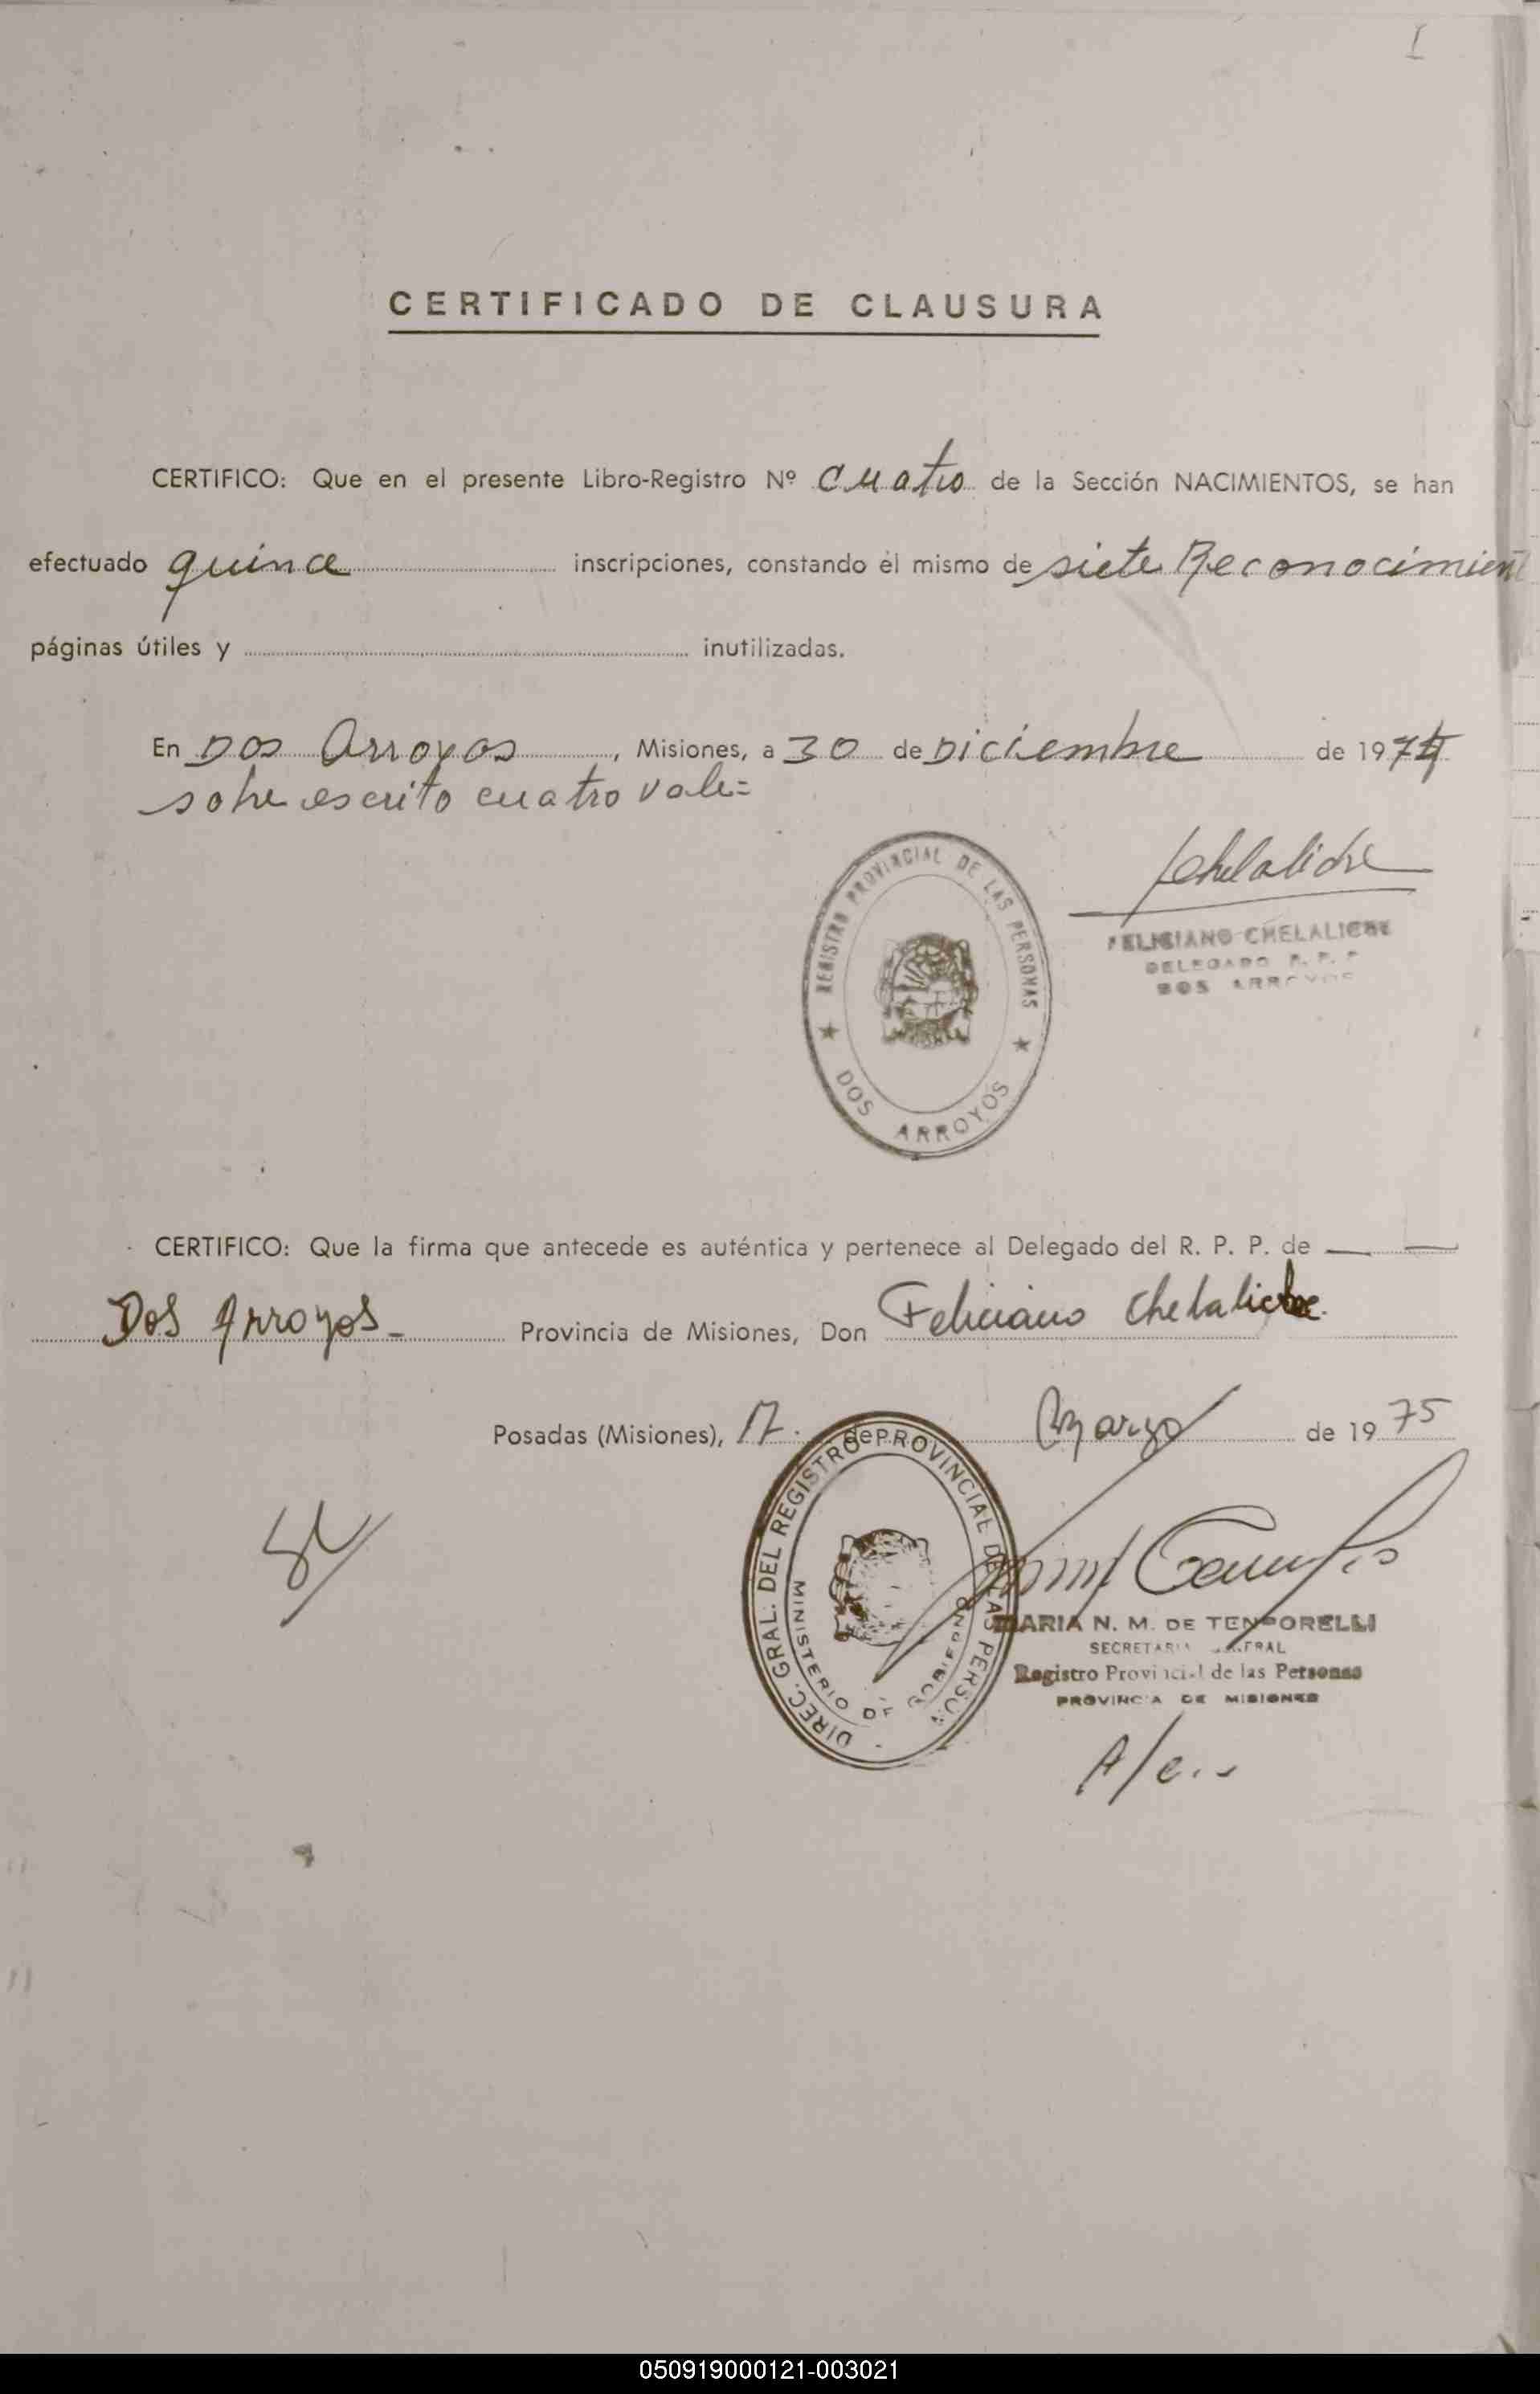 I
CERTIFICADO DE CLAUSURA
CERTIFICO: Que en el presente Libro-Registro Nº cuatro de la Sección NACIMIENTOS, se han
efectuado quince inscripciones, constando el mismo de siete Reconocimient
páginas útiles y inutilizadas.
En Dos Arroyos, Misiones, a 30 de Diciembre de 1974
sobre escrito cuatro vale=
REGISTRO PROVINCIAL DE LAS PERSONAS
DOS ARROYOS
Chelaliche
FELICIANO CHELALICHE
DELEGADO R. P. P
DOS ARROYOS
CERTIFICO: Que la firma que antecede es auténtica y pertenece al Delegado del R. P. P. de
Dos Arroyos - Provincia de Misiones, Don Feliciano Chelaliche.
Posadas (Misiones), 17. de Marzo de 1975
DIREC. GRAL. DEL REGISTRO PROVINCIAL DE LAS PERSON
MINISTERIO DE GOBIERNO
MARIA N. M. DE TEMPORELLI
SECRETARIA GENERAL
Registro Provincial de las Personas
PROVINCIA DE MISIONES
A/c..
050919000121-003021